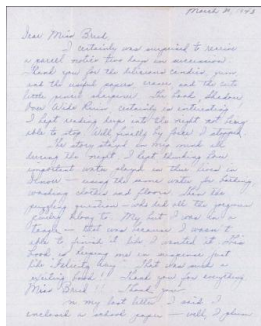 March 21, 1943
Dear Miss Breed,
I certainly was surprised to receive
a parcel notice two days in succession.
Thank you for the delicious candies, gum
and the useful papers, crayon and the cute
little pencil sharpener. The book Shadow
Over Wide Ruin certainly is interesting
I kept reading deep into the night not being
able to stop. Well, finally by I stopped.
The story stayed in my mind all
during the night. I kept thinking how
important water played in their lives in
using the same water for bathing
washing clothes and floors. Then the
puzzling question - who did all the
belong to. My but I was in a
tangle - that was because I wasn't
able to finish it like I wanted it. This
book is keeping me in suspense just
like Felicity Way. That also made
Thank you for everything
Miss Breed!! Thank you
In my last letter I said I
enclosed a school paper - well, I